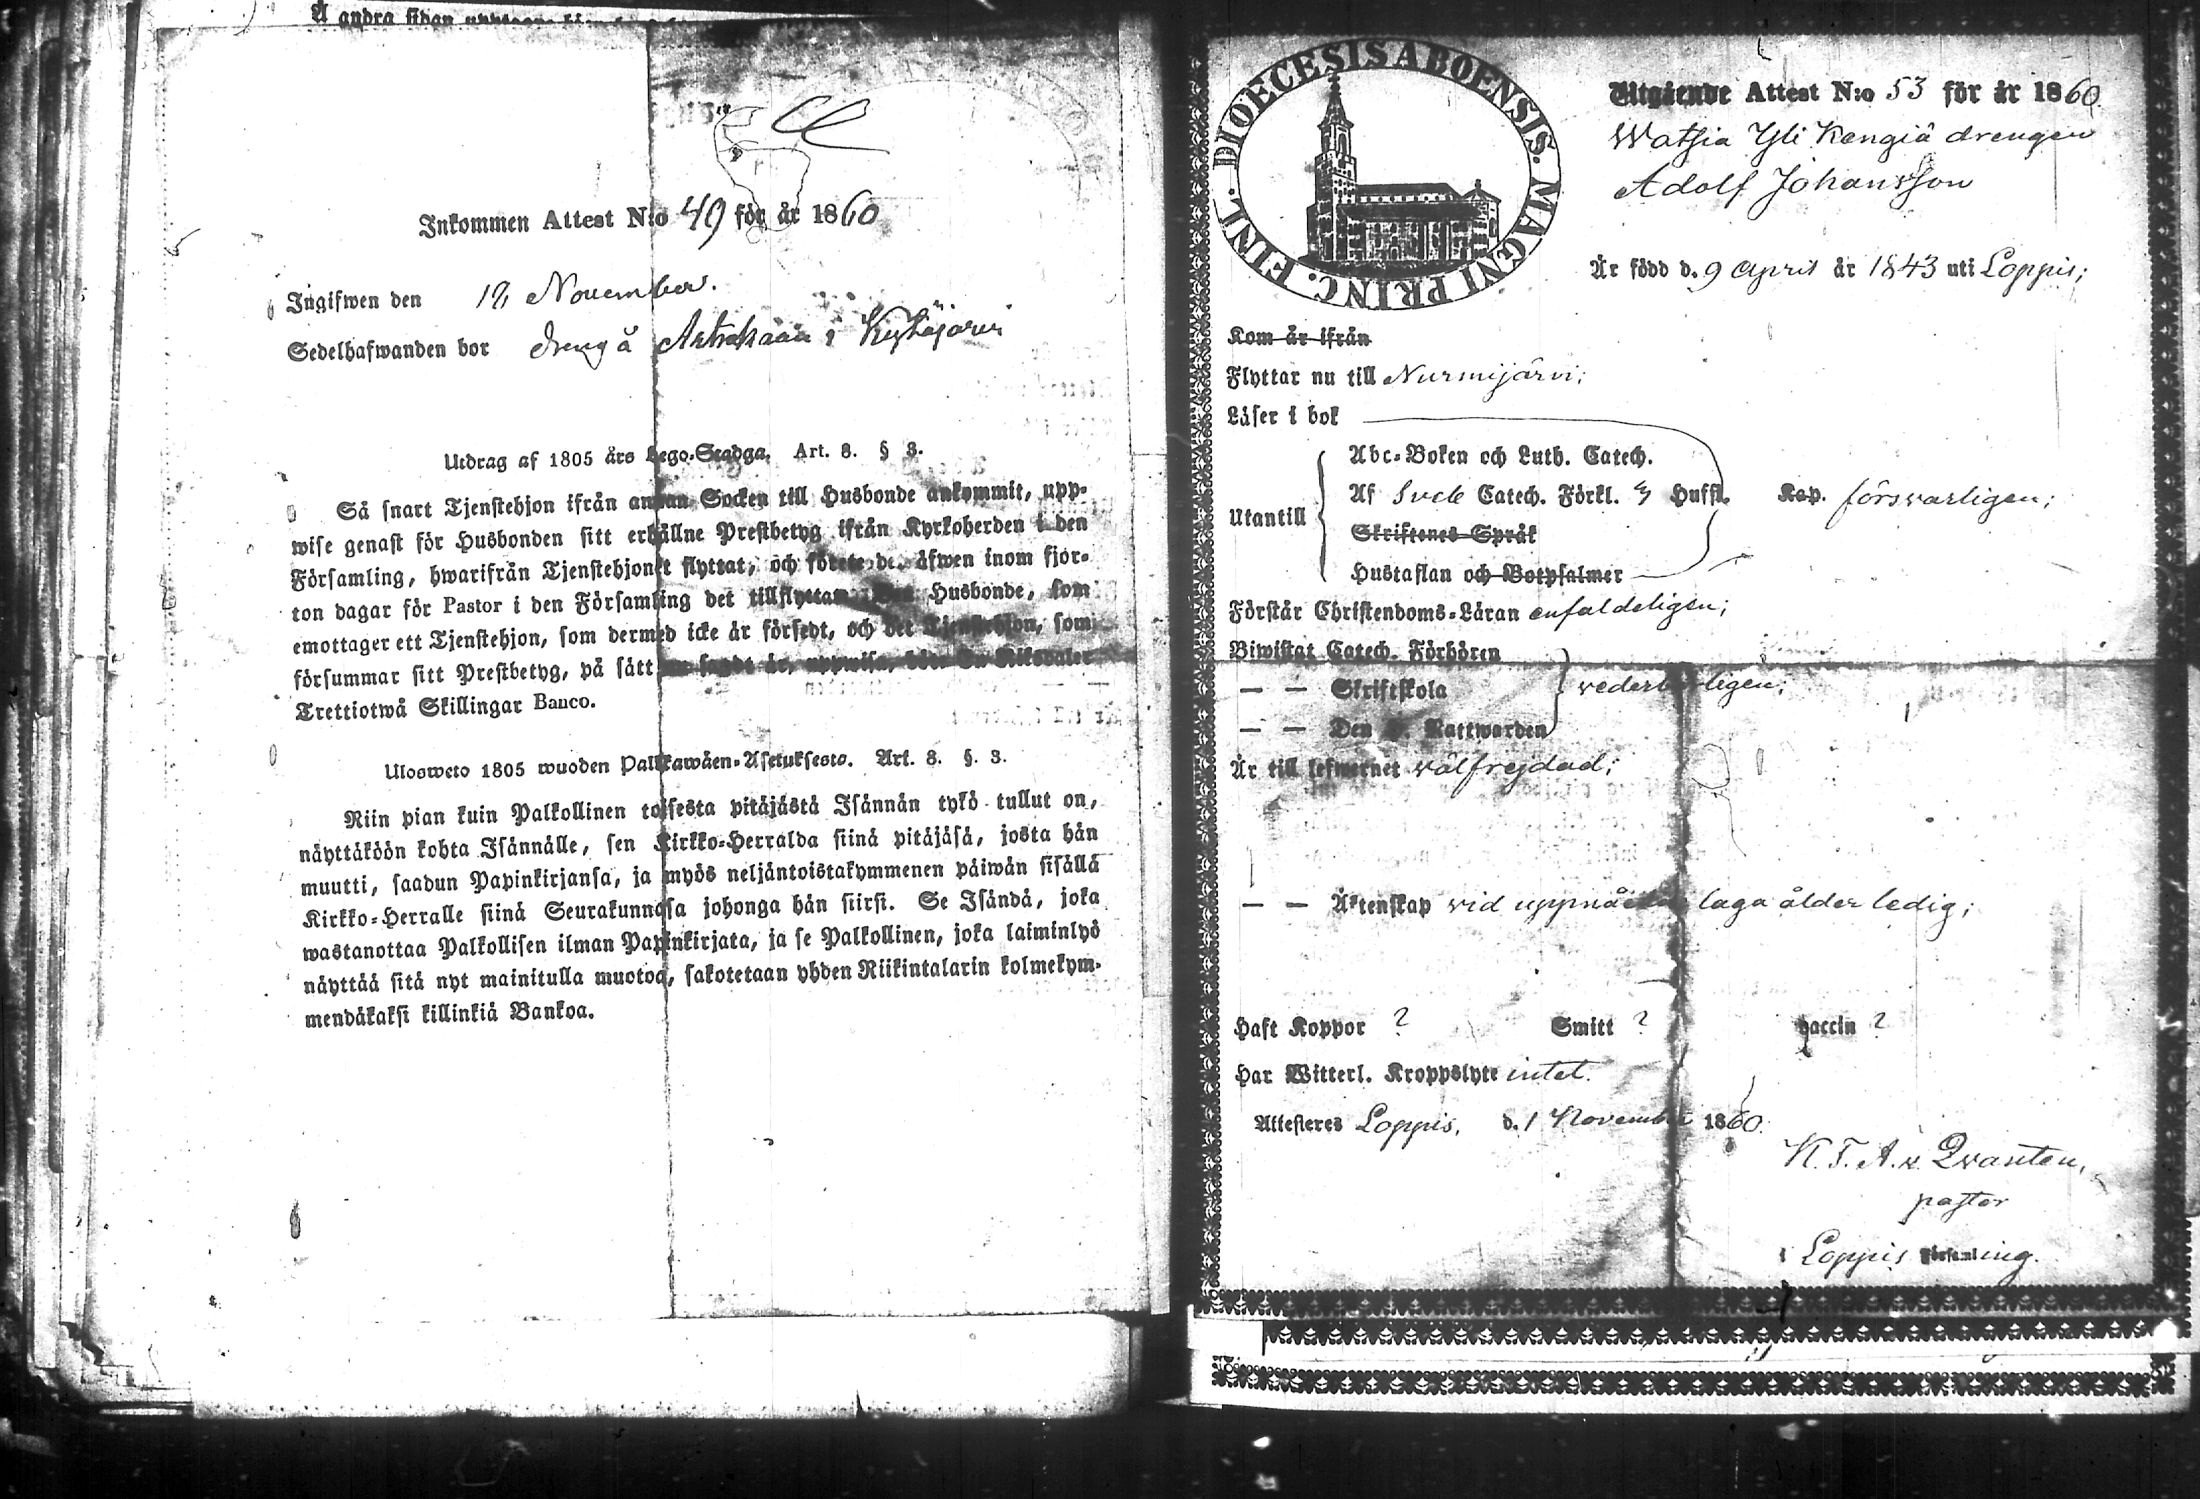 Å andra sidan
Inkommen Attest N:o 49 för år 1860
Ingifwen den 12 November.
Sedelhafwanden bor dreng å i Kyttäjärvi
Utdrag af 1805 års Lego-Stadga. Art. 8. § 3.
Så snart Tjenstehjon ifrån annan Socken till Husbonde ankommit, upp-
wise genast för Husbonden sitt erhållne Prestbetyg ifrån Kyrkoherden i den
Församling, hwarifrån Tjenstehjonet flyttat, och förete det äfwen inom fjor-
ton dagar för Pastor i den Församling det tillflyttar. Husbonde, som
emottager ett Tjenstehjon, som dermed icke är försedt, och det Tjenstehjon, som
försummar sitt Prestbetyg, på sätt nu sagdt är, uppwisa, böte En Riksdaler
Trettiotwå Skillingar Banco.
Ulosweto 1805 wuoden Palkkawäen-Asetuksesta. Art. 8. §. 3.
Niin pian kuin Palkollinen toisesta pitäjästä Isännän tykö tullut on,
näyttäköön kohta Isännälle, sen Kirkko-Herralda siinä pitäjäsä, josta hän
muutti, saadun Papinkirjansa, ja myös neljäntoistakymmenen päiwän sisällä
Kirkko-Herralle siinä Seurakunnasa johonga hän siirsi. Se Isändä, joka
wastanottaa Palkollisen ilman Papinkirjata, ja se Palkollinen, joka laiminlyö
näyttää sitä nyt mainitulla muotoa, sakotetaan yhden Riikintalarin kolmekym-
mendäkaksi killinkiä Bankoa.
DIOECESIS ABOENSIS. MAGNI PRINC. FINL.
Utgående Attest N:o 53 för år 1860.
Watsia Yli Kengiä drengen
Adolf Johansson
Är född d. 9 April år 1843 uti Loppis;
Kom år ifrån
Flyttar nu till Nurmijärvi;
Läser i bok
Abc-Boken och Luth. Catech.
Utantill Af Sveb Catech. Förkl. Kap. försvarligen;
Skriftenes Språk
Hustaflan och Botpsalmer
Förstår Christendoms-Läran enfaldeligen;
Biwistat Catech. Förhören
— — Skriftskola vederbörligen;
— — Den H. Nattwarden
Är till lefwernet välfrejdad;
— — Äktenskap vid uppnådd laga ålder ledig;
Haft Koppor ? Smitt ? Vaccin ?
Har Witterl. Kroppslyte intet.
Attesteres Loppis, d. 1 November 1860.
K. F. A. v. Qvanten,
pastor
i Loppis Församling.